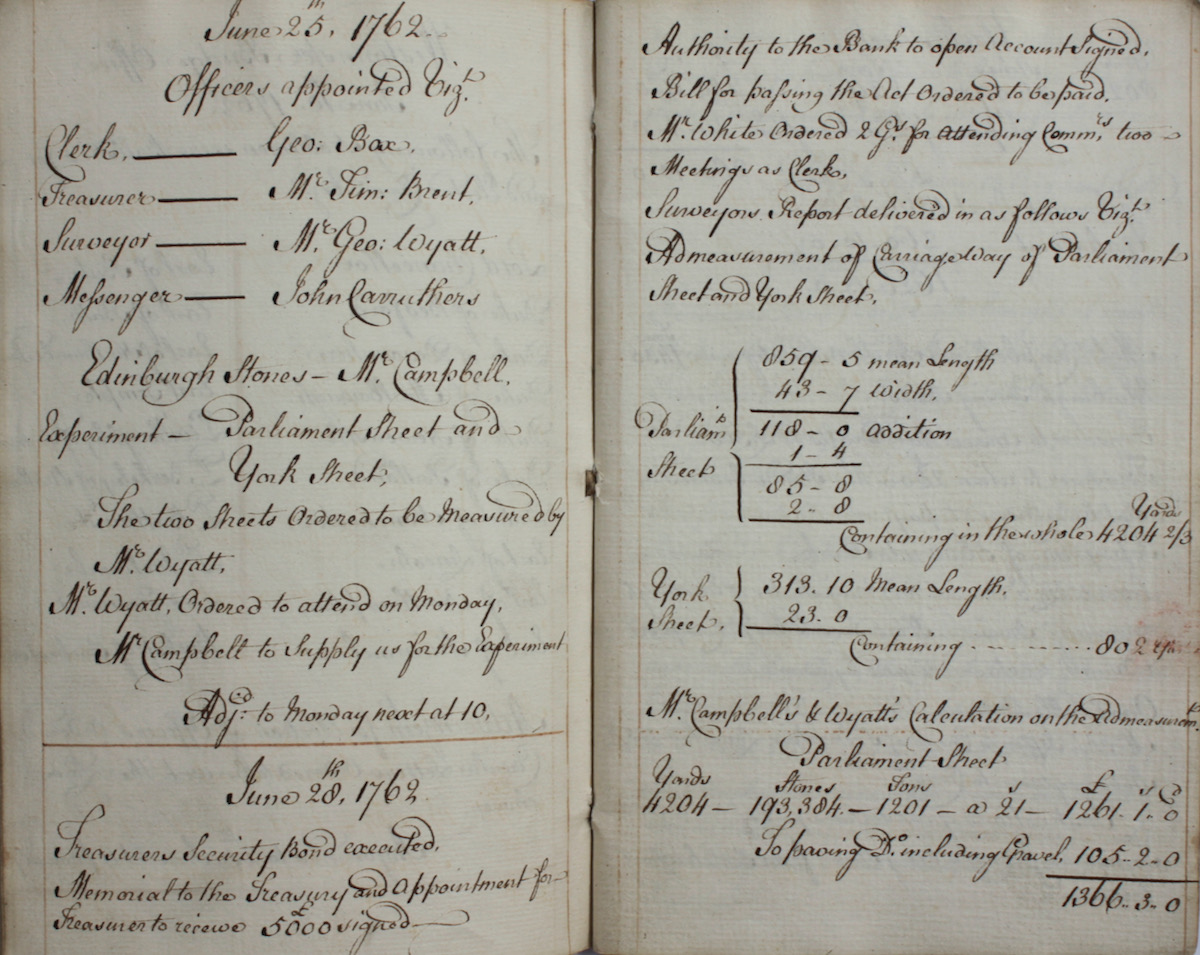 June 25th, 1762.
Officers appointed Vizt.
Clerk, — Geo: Box.
Treasurer — Mr. Tim: Brent.
Surveyor — Mr. Geo: Wyatt.
Messenger — John Carruthers
Edinburgh Stones – Mr. Campbell.
Experiment — Parliament Street and
York Street;
The two Streets Ordered to be Measured by
Mr. Wyatt.
Mr. Wyatt, Ordered to attend on Monday,
Mr Campbell to Supply us for the Experiment
Adjd: to Monday next at 10.
June 28th, 1762.
Treasurers Security Bond executed.
Memorial to the Treasury and Appointment for
Treasurer to receive £5000 signed —
Authority to the Bank to open Account Signed.
Bill for passing the Act Ordered to be paid.
Mr. White Ordered 2 Gs. for attending Commrs. two
Meetings as Clerk.
Surveyors Report delivered in as follows Vizt.
Admeasurement of Carriage Way of Parliament
Street and York Street.
859 – 5 mean Length
43 – 7 Width.
Parliamt. 118 – 0 addition
1 – 4
Street 85 – 8
2 – 8
Yards
Containing in the whole 4204 2/3
York 313. 10 Mean Length.
Street. 23. 0
Containing . . . . . . . . . 802
Mr. Campbell's & Wyatt's Calculation on the Admeasuremt.
Parliament Street
Yards Stones Tons s £ s d
4204 — 193,384. — 1201 — a 21 — 1261. 1. 0
To paving Do. including Gravel, 105. 2. 0
1366. 3. 0